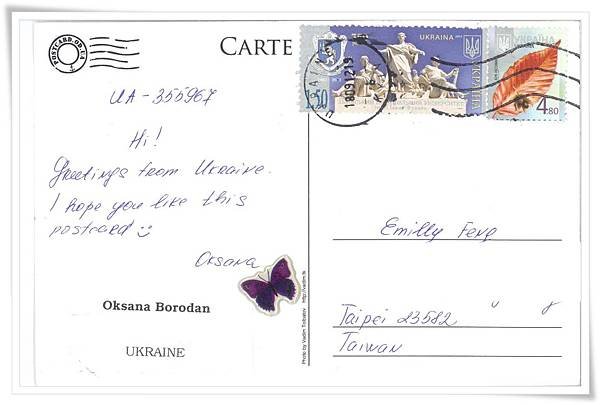 POSTCARD.OD.UA
CARTE
UKRAINA
УКРАЇНА
1.50
УКРАЇНА
4.80
180912 19
UA-355967
Hi!
Greetings from Ukraine.
I hope you like this
postcard
Oksana
Oksana Borodan
UKRAINE
Photo by Vadim Tolbatov http://vadim.tk
Emilly Feng
Taipei 23582
Taiwan